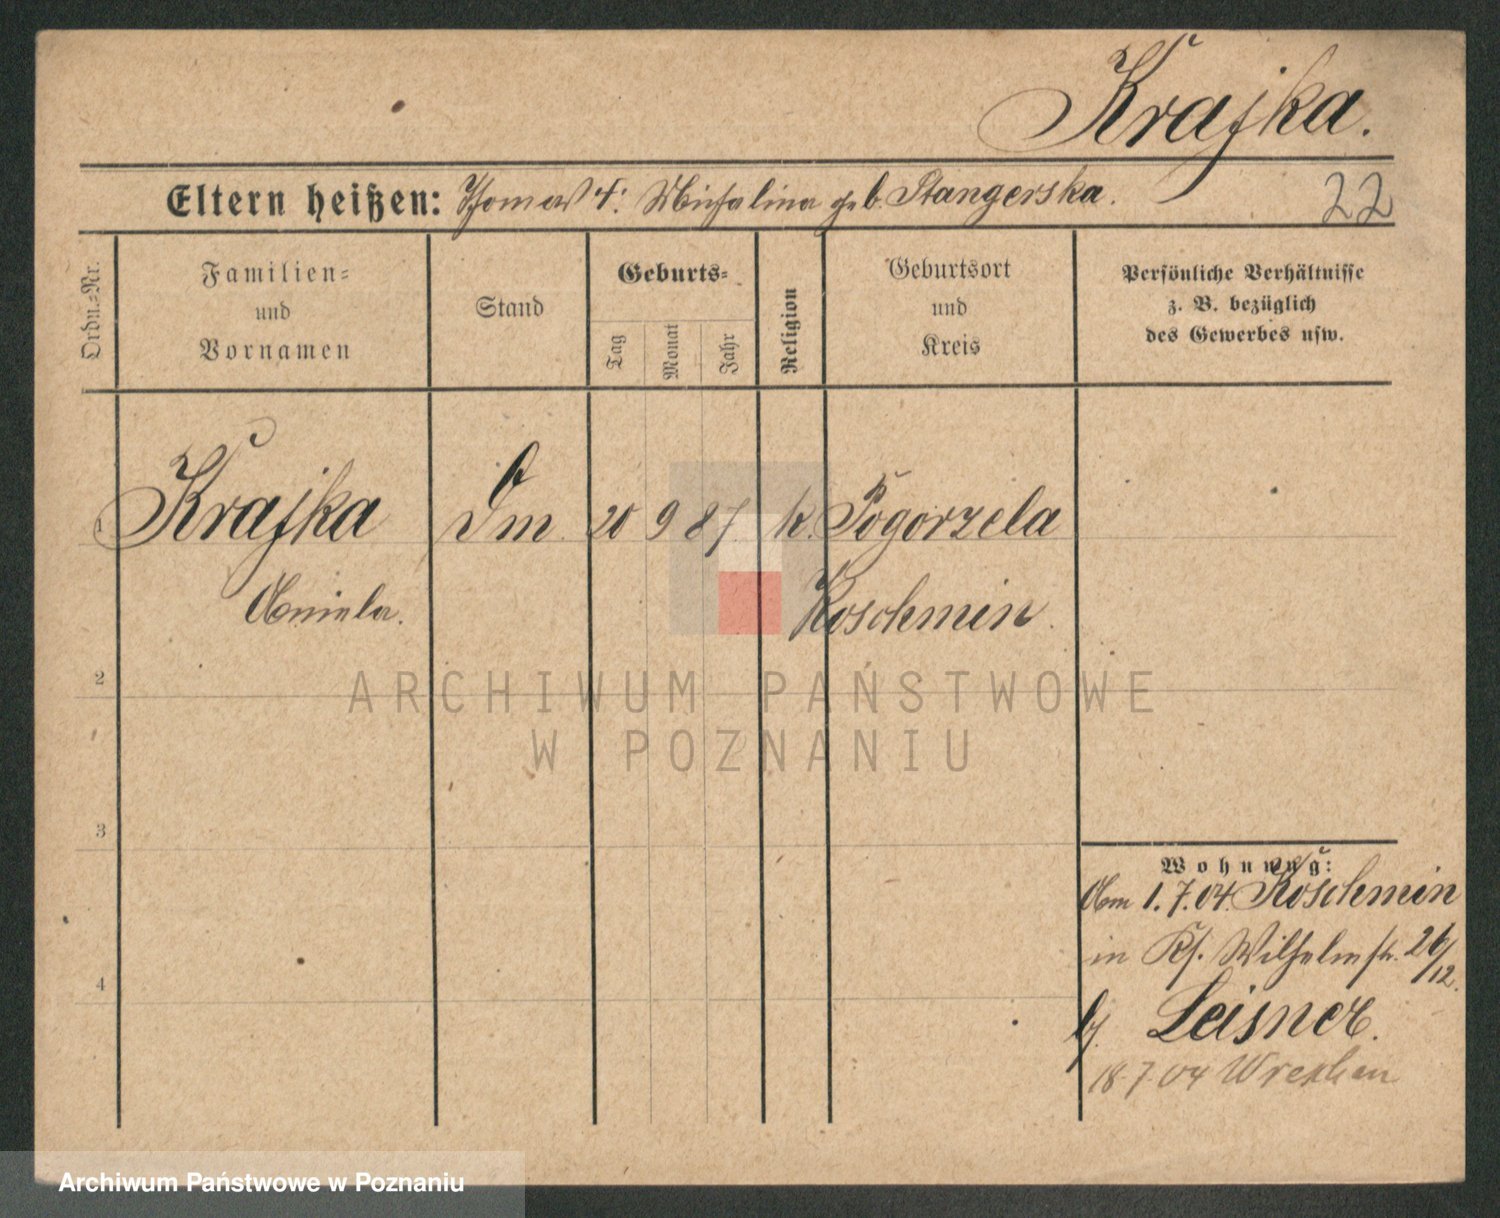 Krajka.
Eltern heißen: Thomas u. Michalina geb. Stangerska.
22
Ordn.=Nr.
Familien=
und
Vornamen
Stand
Geburts=
Tag
Monat
Jahr
Religion
Geburtsort
und
Kreis
Persönliche Verhältnisse
z. B. bezüglich
des Gewerbes usw.
1 Krajka 20 9 87 k. Pogorzela
Aniela. Koschmin.
2
3
4
Wohnung:
Am 1.7.04 Koschmin
in Wilhelmstr. 26/12.
bei Leisner.
18.7.04 Wreschen
ARCHIWUM PAŃSTWOWE
W POZNANIU
Archiwum Państwowe w Poznaniu